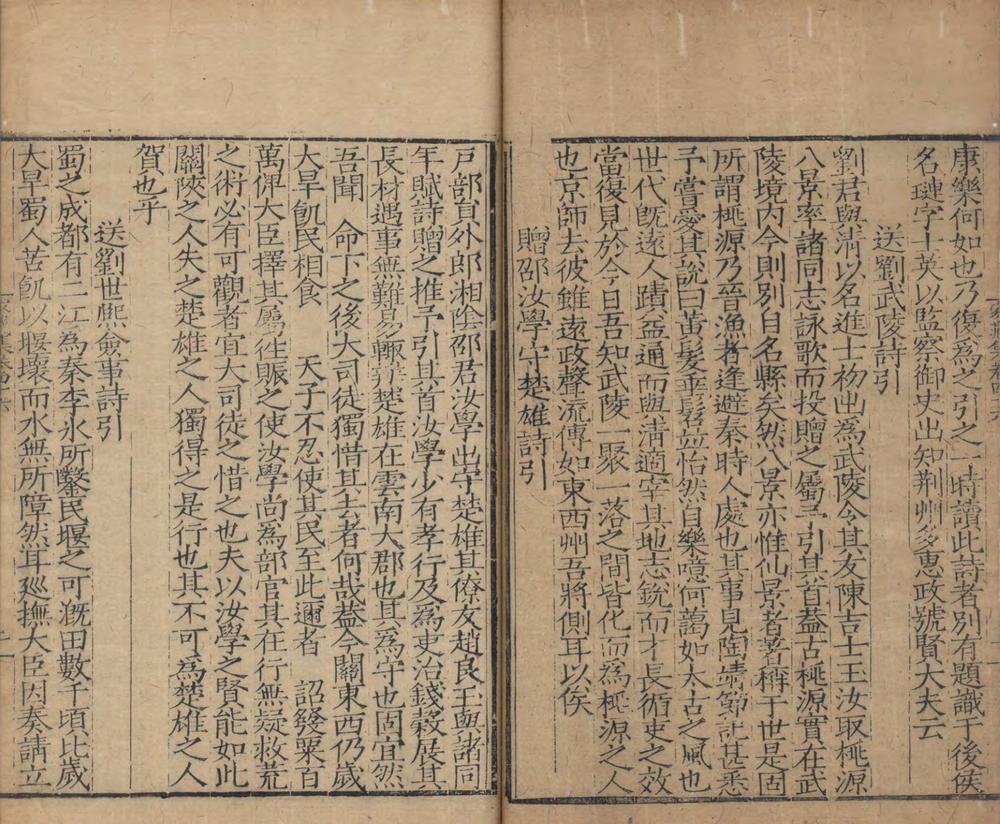 康樂何如也乃復爲之引之一時讀此詩者別有題識于後侯
名璉字士英以監察御史出知荆州多惠政號賢大夫云
送劉武陵詩引
劉君與清以名進士初出爲武陵令其友陳吉士玉汝取桃源
八景率諸同志詠歌而投贈之屬予引其首葢古桃源實在武
陵境内今則別自名縣矣然八景亦惟仙景者著稱于世是固
所謂桃源乃晉漁者逢避秦時人處也其事見陶靖節記甚悉
予嘗愛其說曰黄髮垂髫並怡然自樂噫何藹如太古之風也
世代旣遠人蹟益通而與清適宰其地志銳而才長循吏之效
當復見於今日吾知武陵一聚一落之間皆化而爲桃源之人
也京師去彼雖遠政聲流傳如東西州吾將側耳以俟
贈邵汝學守楚雄詩引
戸部員外郎湘陰邵君汝學出守楚雄其僚友趙良玉與諸同
年賦詩贈之推予引其首汝學少有孝行及爲吏治錢穀展其
長材遇事無難易輙辨楚雄在雲南大郡也其爲守也固宜然
吾聞 命下之後大司徒獨惜且士者何哉葢今關東西仍歲
大旱飢民相食 天子不忍使其民至此邇者 詔發粟百
萬俾大臣擇其屬徃賑之使汝學尚爲部官其在行無疑救荒
之術必有可觀者宜大司徒之惜之也夫以汝學之賢能如此
關陜之人失之楚雄之人獨得之是行也其不可爲楚雄之人
賀也乎
送劉世熈僉事詩引
蜀之成都有二江爲秦李氷所鑿民堰之可漑田數千頃比歲
大旱蜀人苦飢以堰壞而水無所障然耳廵撫大臣因奏請立